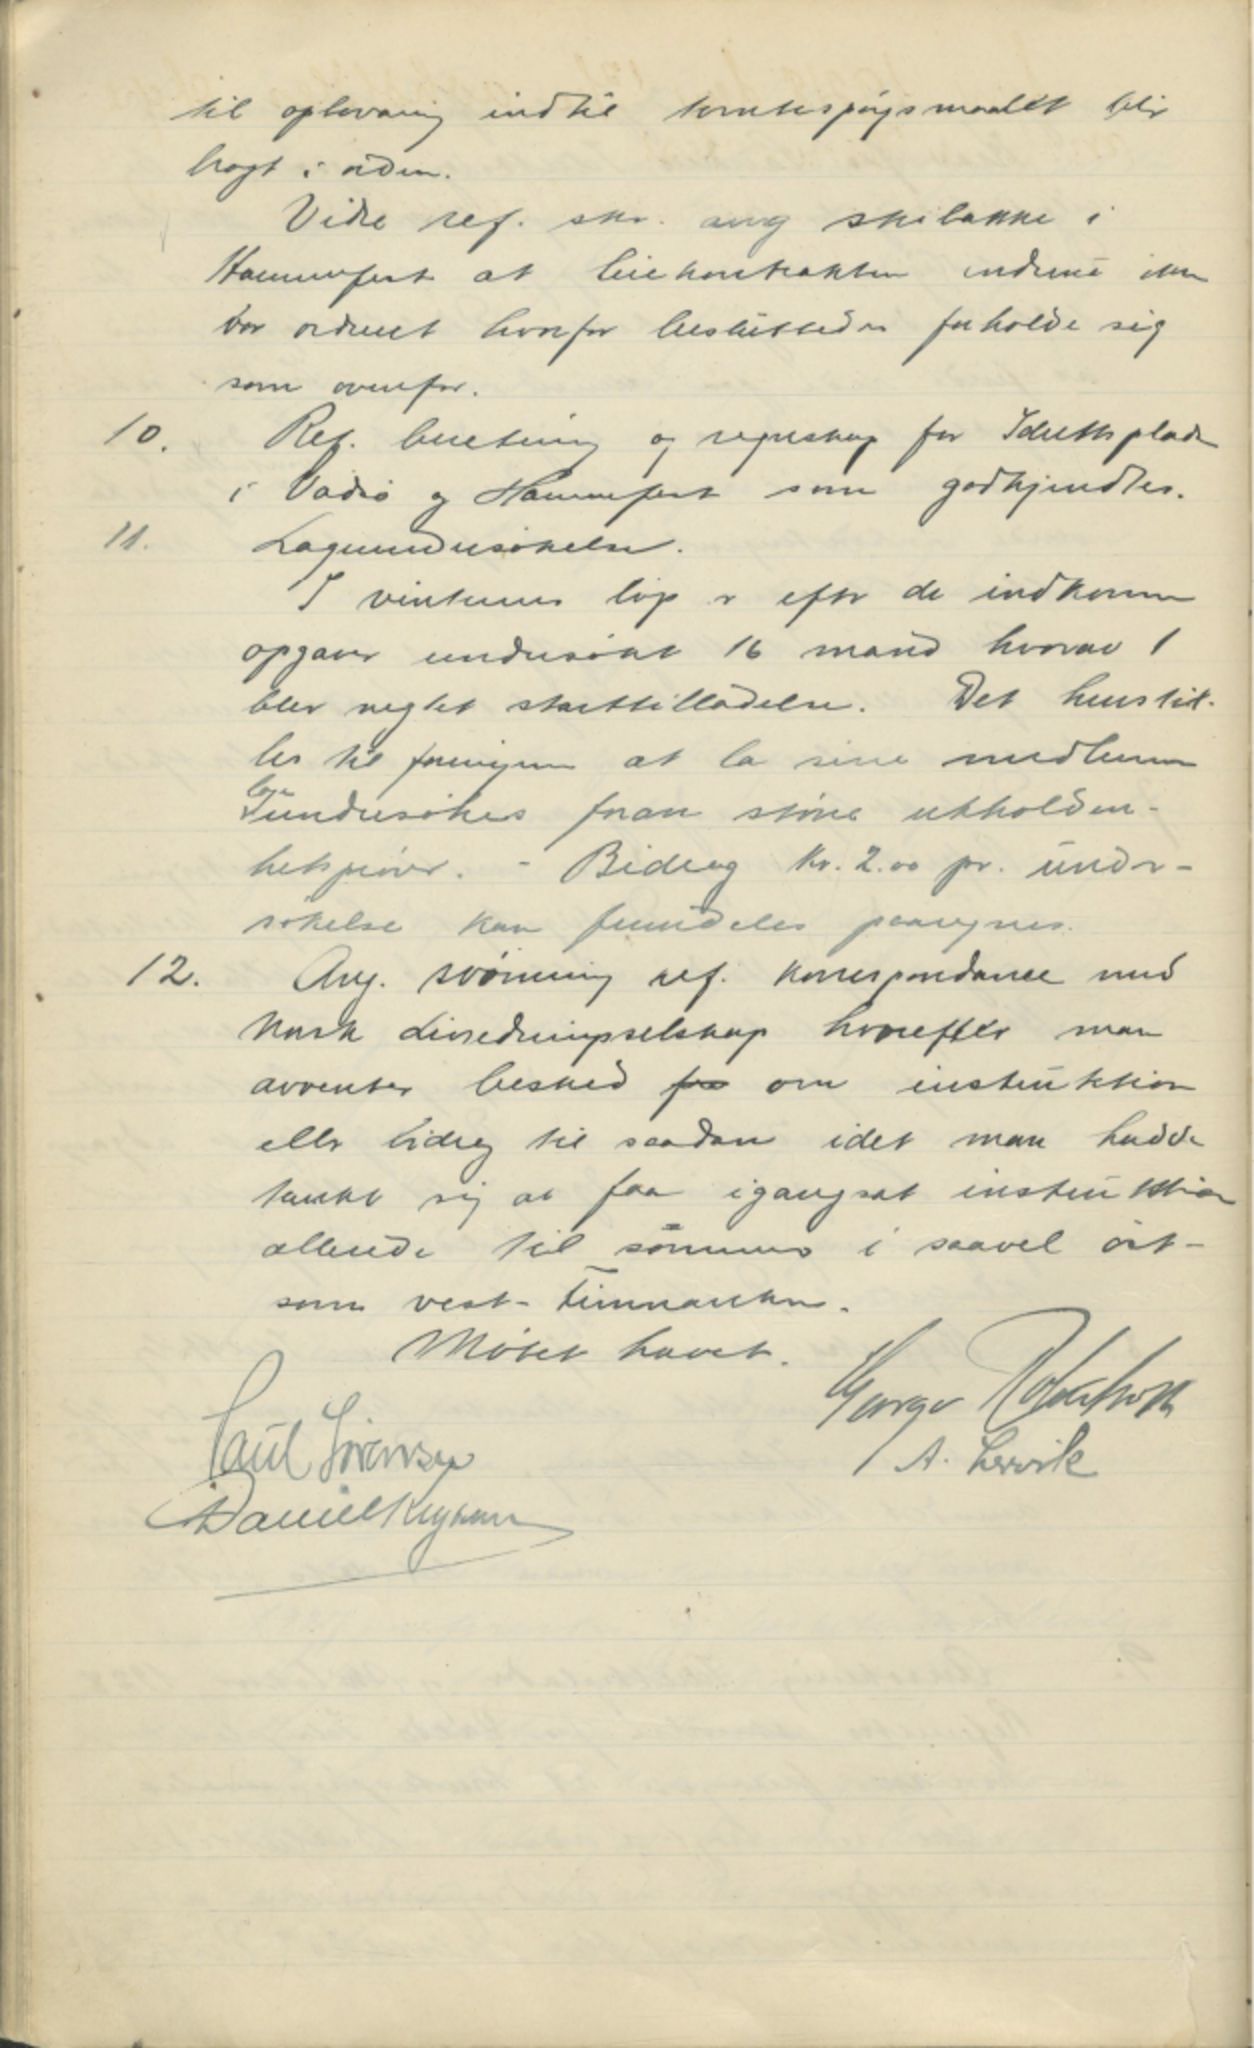 til opbevaring indtil tomtespørgsmaalet blir
bragt i orden.
Vidre ref. skr. ang skibakke i
Hammerfest at leiekontrakten endnu ikke
var ordnet hvorfor besluttedes forholde sig
som ovenfor.
10. Ref. beretning og regnskap for Idrettsplads
i Vadsø og Hammerfest som godkjendtes.
11. Lægeundersøkelse.
I vinterens løp er efter de indkomne
opgaver undersøkt 16 mand hvorav 1
blev negtet starttilladelse. Det henstil-
les til foreningene at la sine medlemmer
lægeundersøkes foran større utholden-
hetsprøver. - Bidrag kr. 2.00 pr. under-
søkelse kan fremdeles paaregnes.
12. Ang. svømning ref. korrespondance med
Norsk Livredningsselskap hvorefter man
avventer besked fra om instruktion
eller bidrag til saadan idet man hadde
tænkt sig at faa igangsat instruktion
allerede til sommeren i saavel øst-
som vest-Finnmarken.
Møtet hævet.
Paul Sørensen
A. Lervik